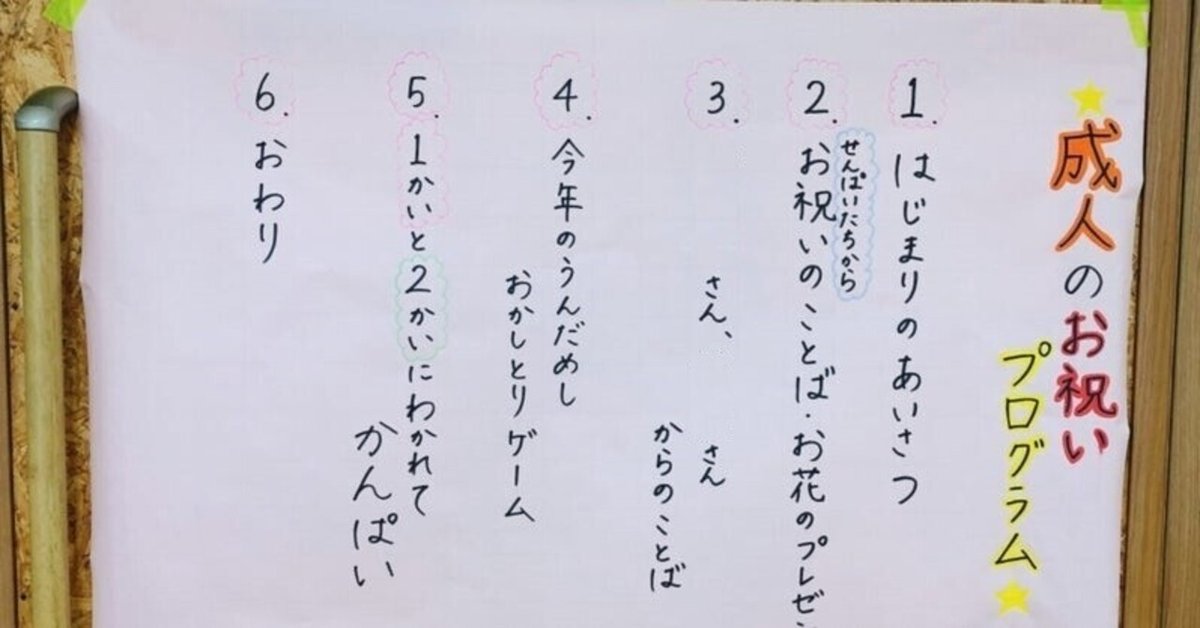 成人のお祝い
プログラム
1. はじまりのあいさつ
せんぱいたちから
2. お祝いのことば・お花のプレゼ
3. さん、 さん
からのことば
4. 今年のうんだめし
おかしとりゲーム
5. 1かいと2かいにわかれて
かんぱい
6. おわり